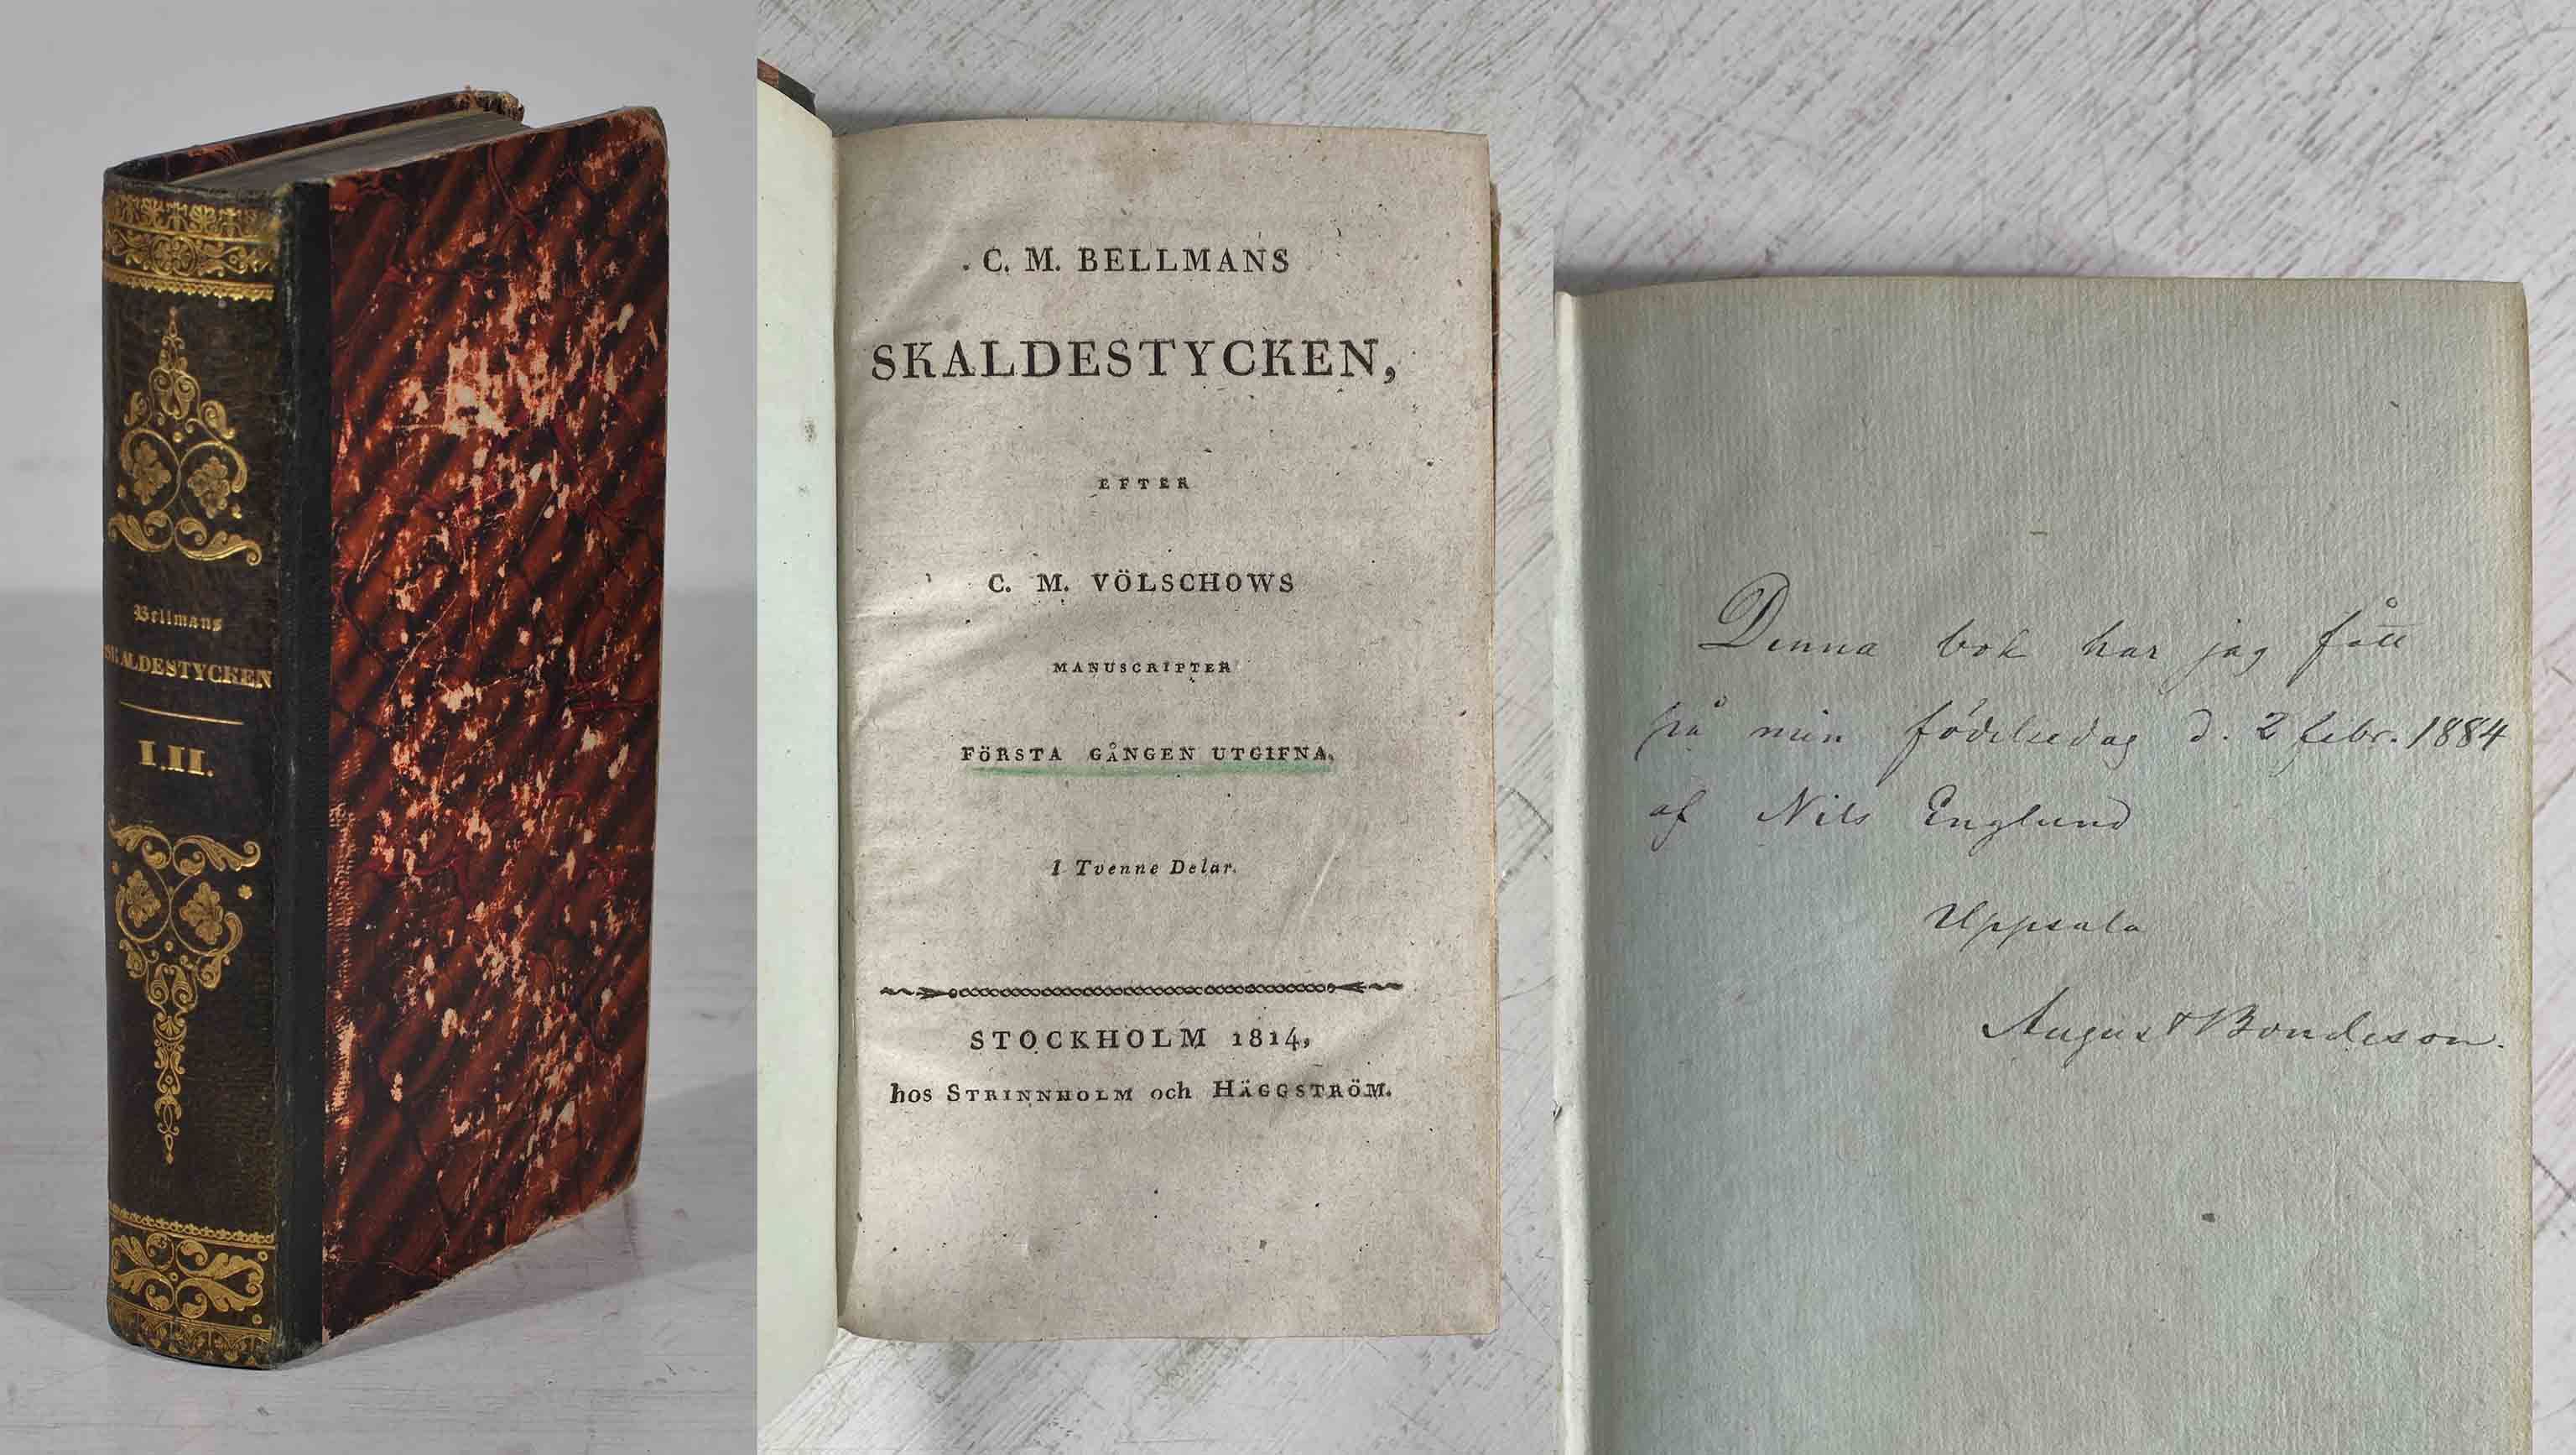 Bellmans
SKALDESTYCKEN
I.II.
C. M. BELLMANS
SKALDESTYCKEN,
EFTER
C. M. VÖLSCHOWS
MANUSCRIPTER
FÖRSTA GÅNGEN UTGIFNA,
I Tvenne Delar.
STOCKHOLM 1814,
hos STRINNHOLM och HÄGGSTRÖM.
Denna bok har jag fått
på min födelsedag d. 2 febr. 1884
af Nils Englund
Uppsala
August Bondeson.